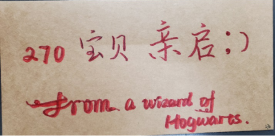 270 宝贝 亲启:)
From a wizard of
Hogwarts.